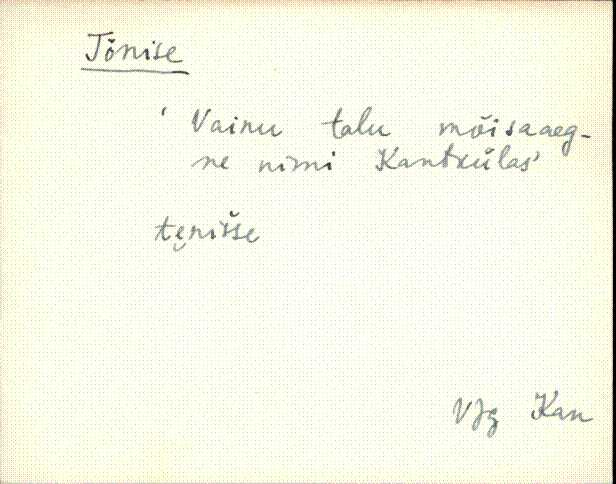 Tõnise
' Vainu talu mõisaaeg-
ne nimi Kantkülas'
te̮nišse
VJg Kan